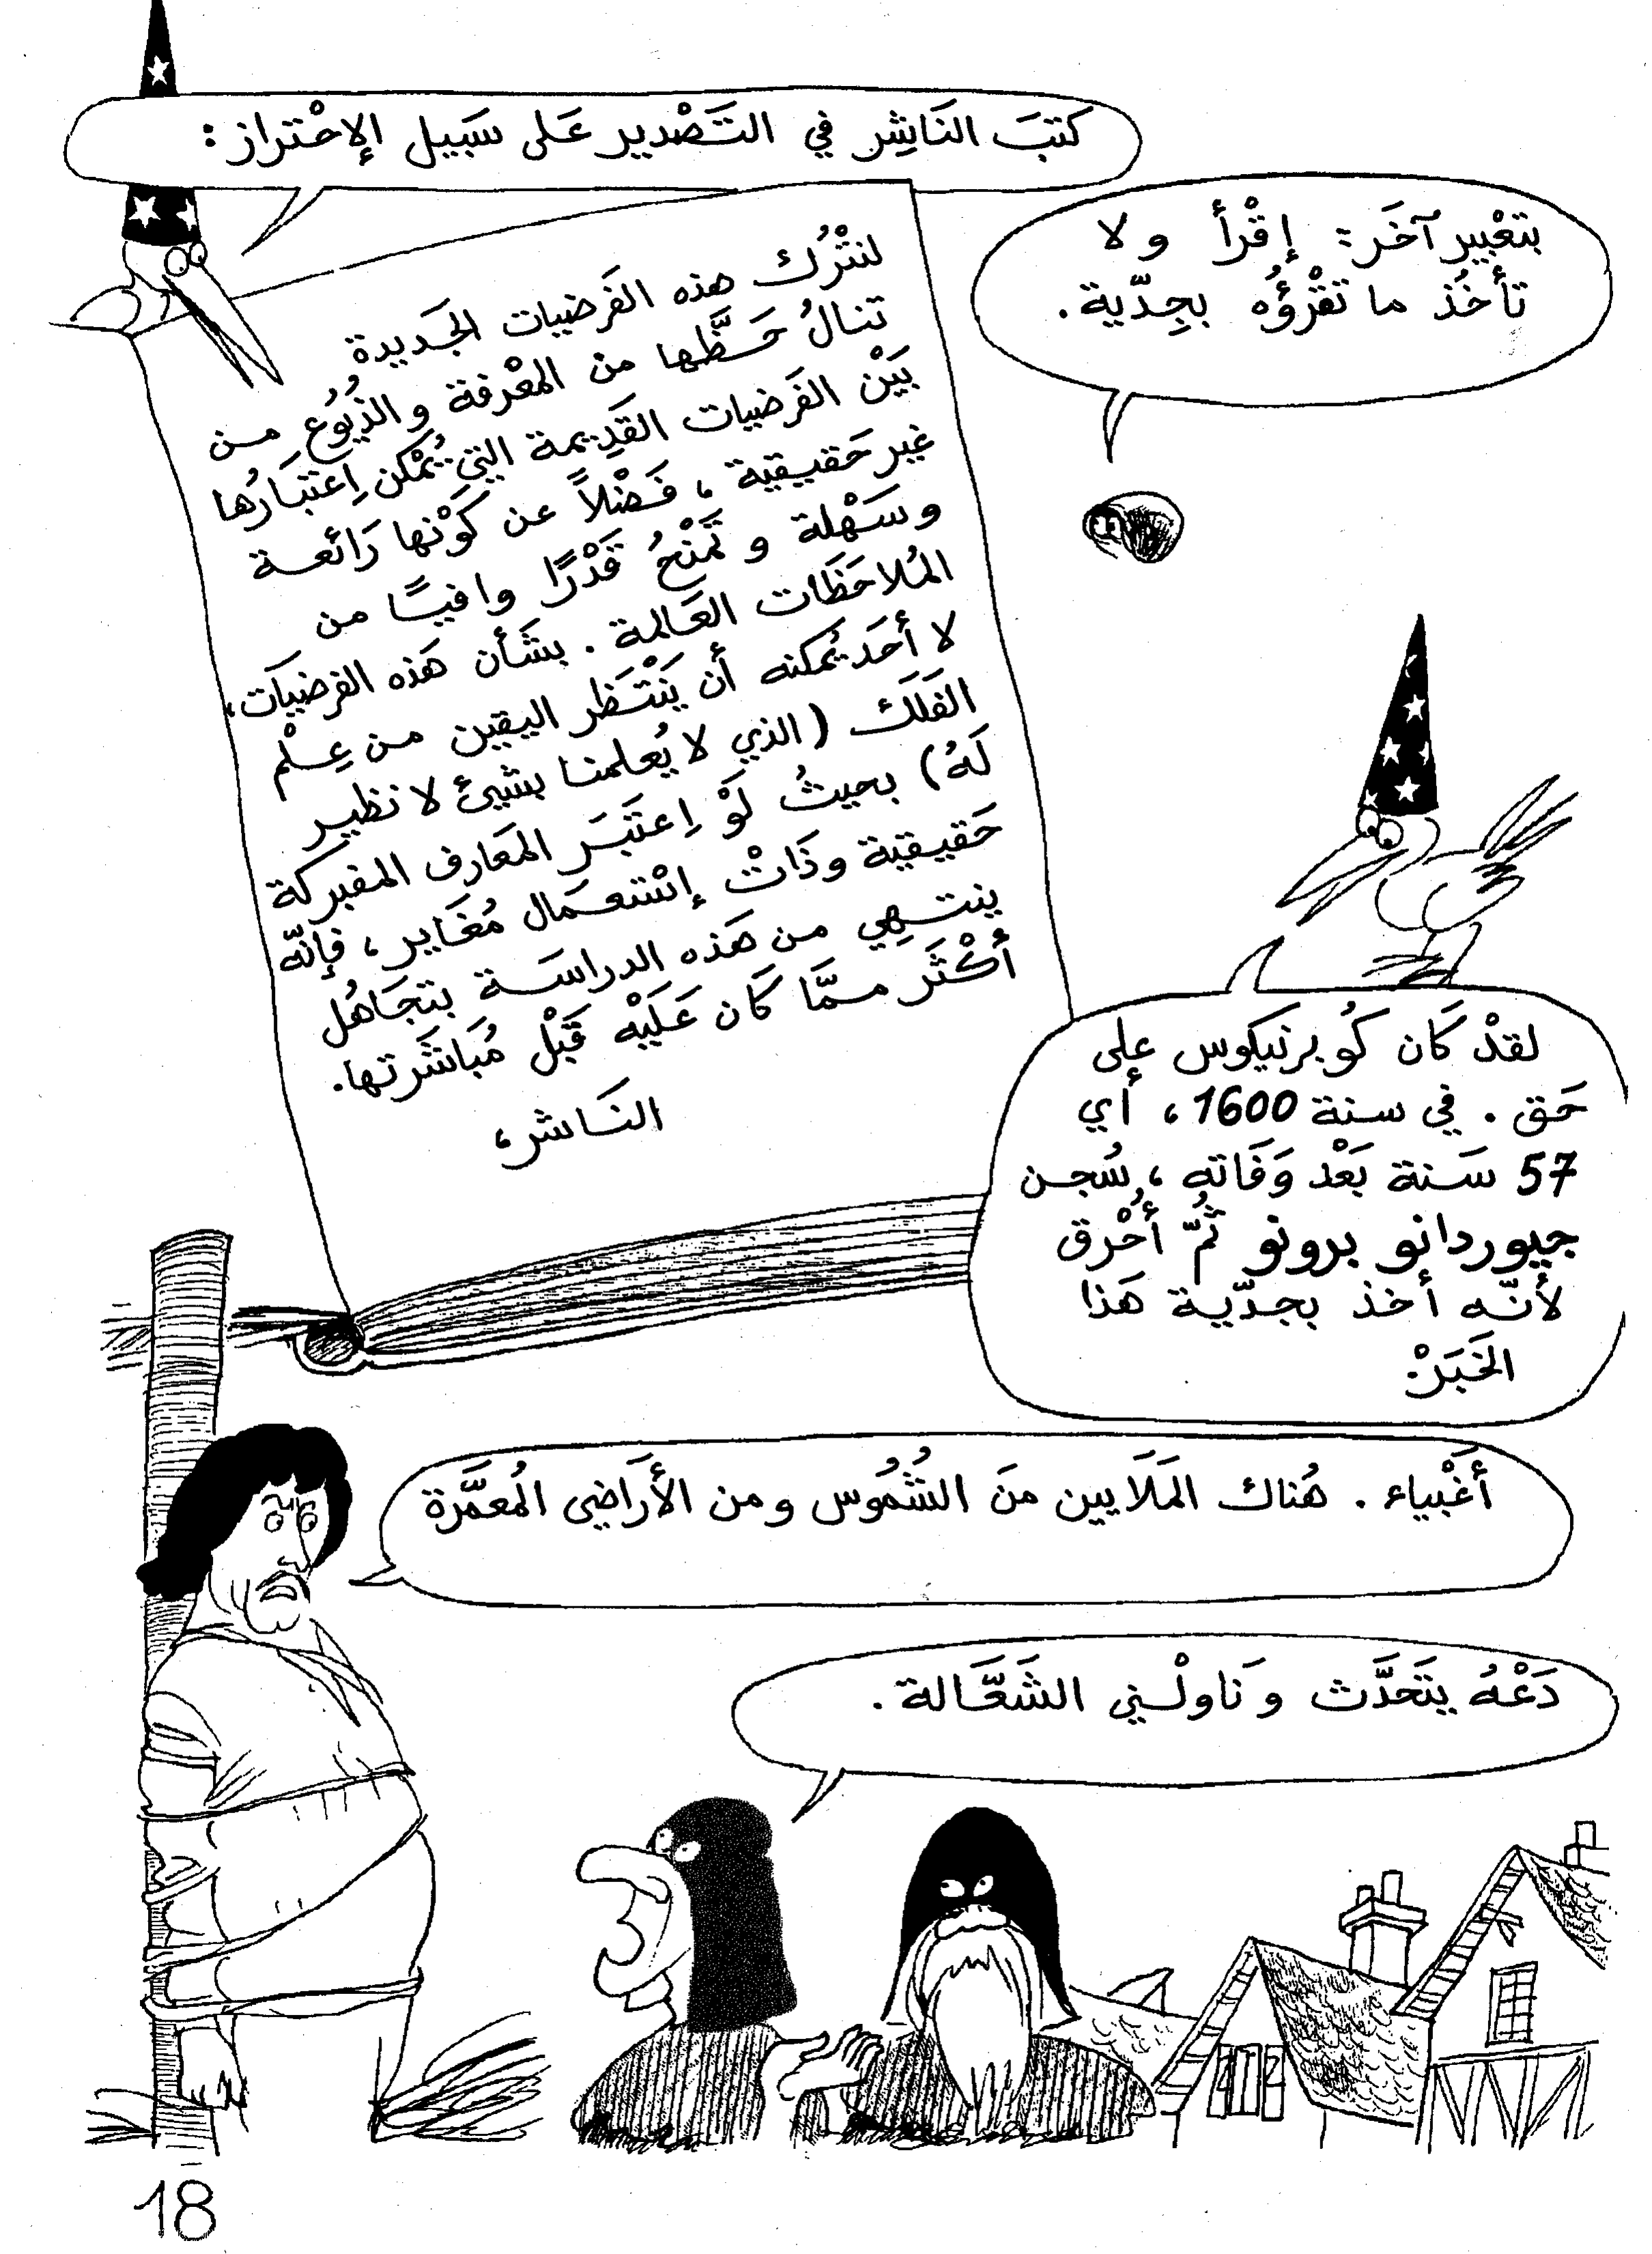 كتبَ النَاشِر في التَصْدير عَلى سَبيل الإحْتراز :
بتعْبير آخَر : إقْرأ ولا
تأخُذ ما تقْرؤُه بجِدّية .
لنتْرُك هذه الفَرضيات الجَديدة
تنالُ حَظَّها من المعْرفة والذُيُوع من
بَيْن الفَرضيات القَديمة التي يُمْكن اِعتبَارُها
غير حَقيقية ، فَضْلاً عن كَوْنها رَائعة
وسَهْلة و تمْنَحُ قَدْرًا وافيًا من
المُلاحَظَات العَالمة . بشَأن هَذه الفرضيَات ،
لا أحَد يُمكنه أن يَنْتَظر اليقين من عِلْم
الفَلَك (الذي لا يُعلمنا بشيئ لا نظير
لَهُ) بحيثُ لَوْ اِعتَبَر المَعَارف المفبركة
حَقيقية وذَاتْ إسْتعمَال مُغَاير ، فإنّه
ينتهِي من هَذه الدراسَة بتجَاهُل
أكْثَر ممَّا كَان عَلَيْه قَبْل مُبَاشَرتها .
النَاشر ،
لقدْ كَان كُوبرنيكوس على
حَق . في سنة 1600 ، أي
57 سَنة بَعْد وَفَاته ، سُجن
جيوردانو برونو ثُمّ أُحْرق
لأنّه أخذ بجدّية هَذا
الخَبَرْ.
أَغْبياء . هُناك المَلَايين منَ الشُمُوس ومن الأَرَاضي المُعمَّرة
دَعْهُ يتَحَدَّث وَناولْني الشَعَّالة .
18